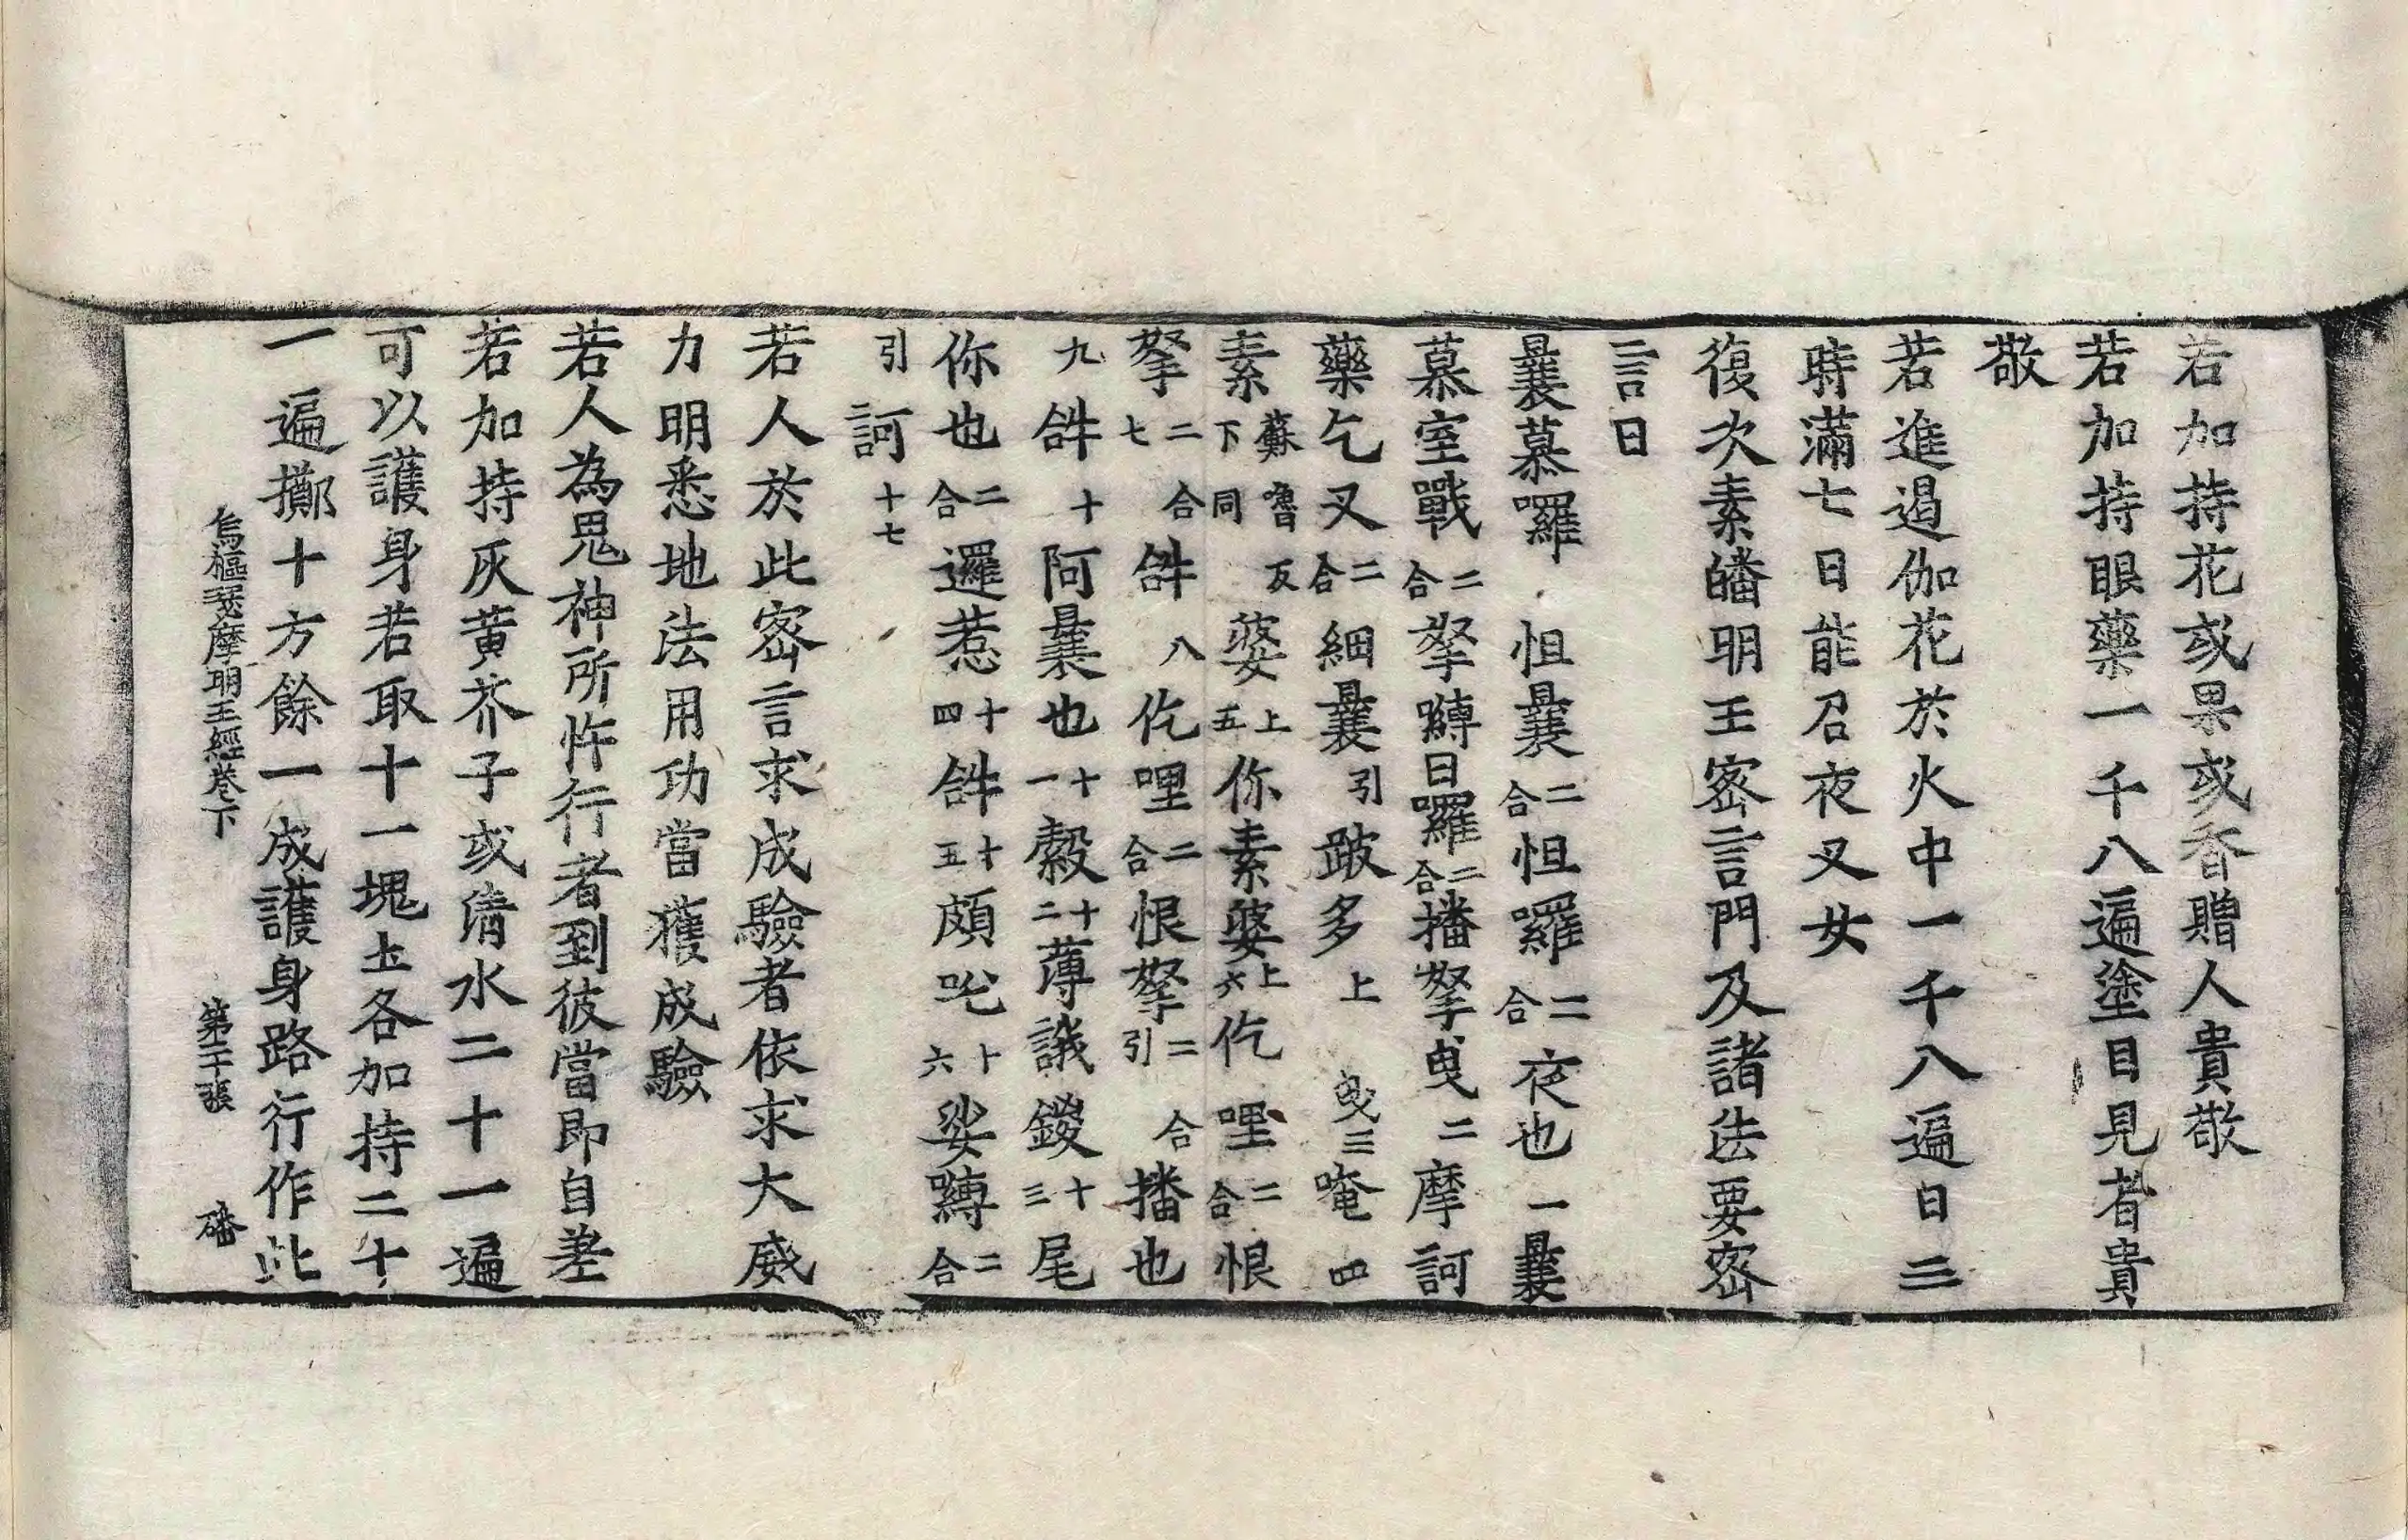 若加持花或果或香贈人貴敬
若加持眼藥一千八遍塗目見者貴
敬
若進遏伽花於火中一千八遍日三
時滿七日能召夜叉女
復次素皤明王密言門及諸法要密
言曰
曩慕囉怛曩二合怛囉二合夜也一曩
慕室戰二合拏嚩日囉二合播拏曳二摩訶
藥乞叉二合細曩引跛多上曳三唵四
素蘇嚕反下同婆上五你素婆上六仡哩二合恨
拏二合七𤙖八仡哩二合恨拏二合引播也
九𤙖十阿曩也十一縠十二薄誐鑁十三尾
你也二合邏惹十四𤙖十五頗吒十六娑嚩二合
引訶十七
若人於此密言求成驗者依求大威
力明悉地法用功當獲成驗
若人為鬼神所忤行者到彼當即自差
若加持灰黄芥子或清水二十一遍
可以護身若取十一塊土各加持二十
一遍擲十方餘一成護身路行作此
烏樞瑟摩明王經卷下 第二十張 磻